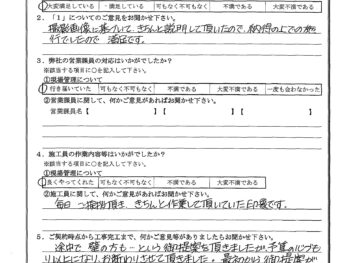 大変満足している ・満足している 可もなく不可もなく 不満である 大変不満である
2．「1」についてのご意見をお聞かせ下さい。
撮影画像に基づいて、きちんと説明して頂いたので、納得の上での施
行でしたので 満足です。
3．弊社の営業課員の対応はいかがでしたか？
※該当する項目に○を記入して下さい。
①現場管理について
行き届いていた 可もなく不可もなく 不満である 大変不満である 一度も会わなかった
②営業課員に関して、何かご意見があればお聞かせ下さい。
営業課員名【 】【 】【 】
4．施工員の作業内容等はいかがでしたか？
※該当する項目に○を記入して下さい。
①現場管理について
良くやってくれた 可もなく不可もなく 不満である 大変不満である
②施工員に関して、何かご意見があればお聞かせ下さい。
毎日 頂き、きちんと作業して頂いていた印象です。
5．ご契約時点から工事完工まで、何かご意見等がありましたらお聞かせ下さい。
途中で 壁の方も…という御提案も頂きましたが、予算の
り以上になり、お断りさせて頂きました。最初から御提案が